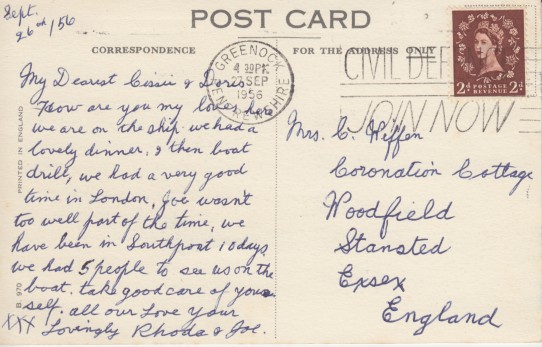 Sept.
26th/56
POST CARD
CORRESPONDENCE
FOR THE ADDRESS ONLY
GREENOCK
4 30PM
27 SEP
1956
RENFREWSHIRE
CIVIL DEF
JOIN NOW
POSTAGE
REVENUE
2d 2d
My Dearest Cissie & Doris
How are you my loves, here
we are on the ship. we had a
lovely dinner, & then boat
drill, we had a very good
time in London, Joe wasn't
too well part of the time, we
have been in Southport 10 days
we had 5 people to see us on the
boat. take good care of your
self. all our Love your
XXX Lovingly Rhoda & Joe.
Mrs. C. Wiffen
Coronation Cottage
Woodfield
Stansted
Essex
England
PRINTED IN ENGLAND
B. 970